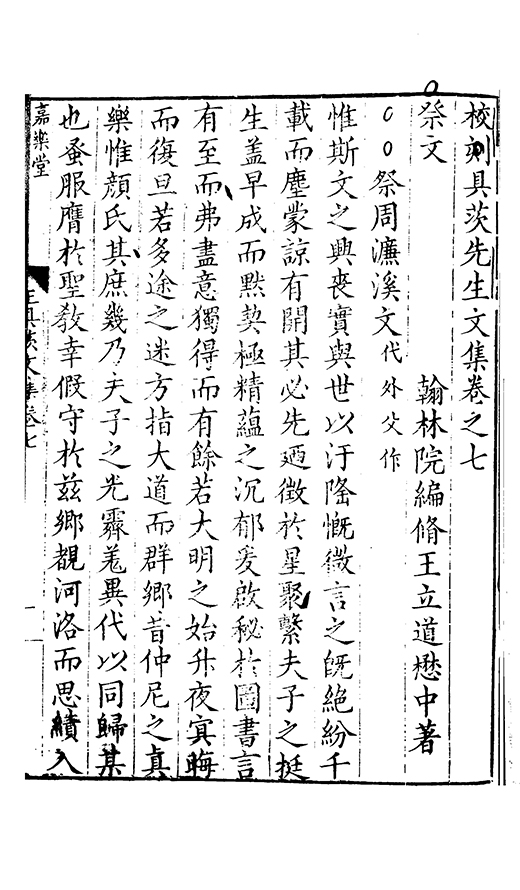 校刻具茨先生文集卷之七
翰林院編脩王立道懋中著
祭文
祭周濂溪文代外父作
惟斯文之興喪實與世以汙隆慨微言之旣絶紛千
載而塵蒙諒有開其必先迺徵於星聚繫夫子之挺
生盖早成而黙契極精蘊之沉郁爰啟秘於圖書言
有至而弗盡意獨得而有餘若大明之始升夜㝠晦
而復旦若多途之迷方指大道而群鄉昔仲尼之真
樂惟顔氏其庶幾乃夫子之光霽羗異代以同歸某
也蚤服膺於聖敎幸假守於兹鄉覩河洛而思績入
嘉樂堂
王具茨文集卷七